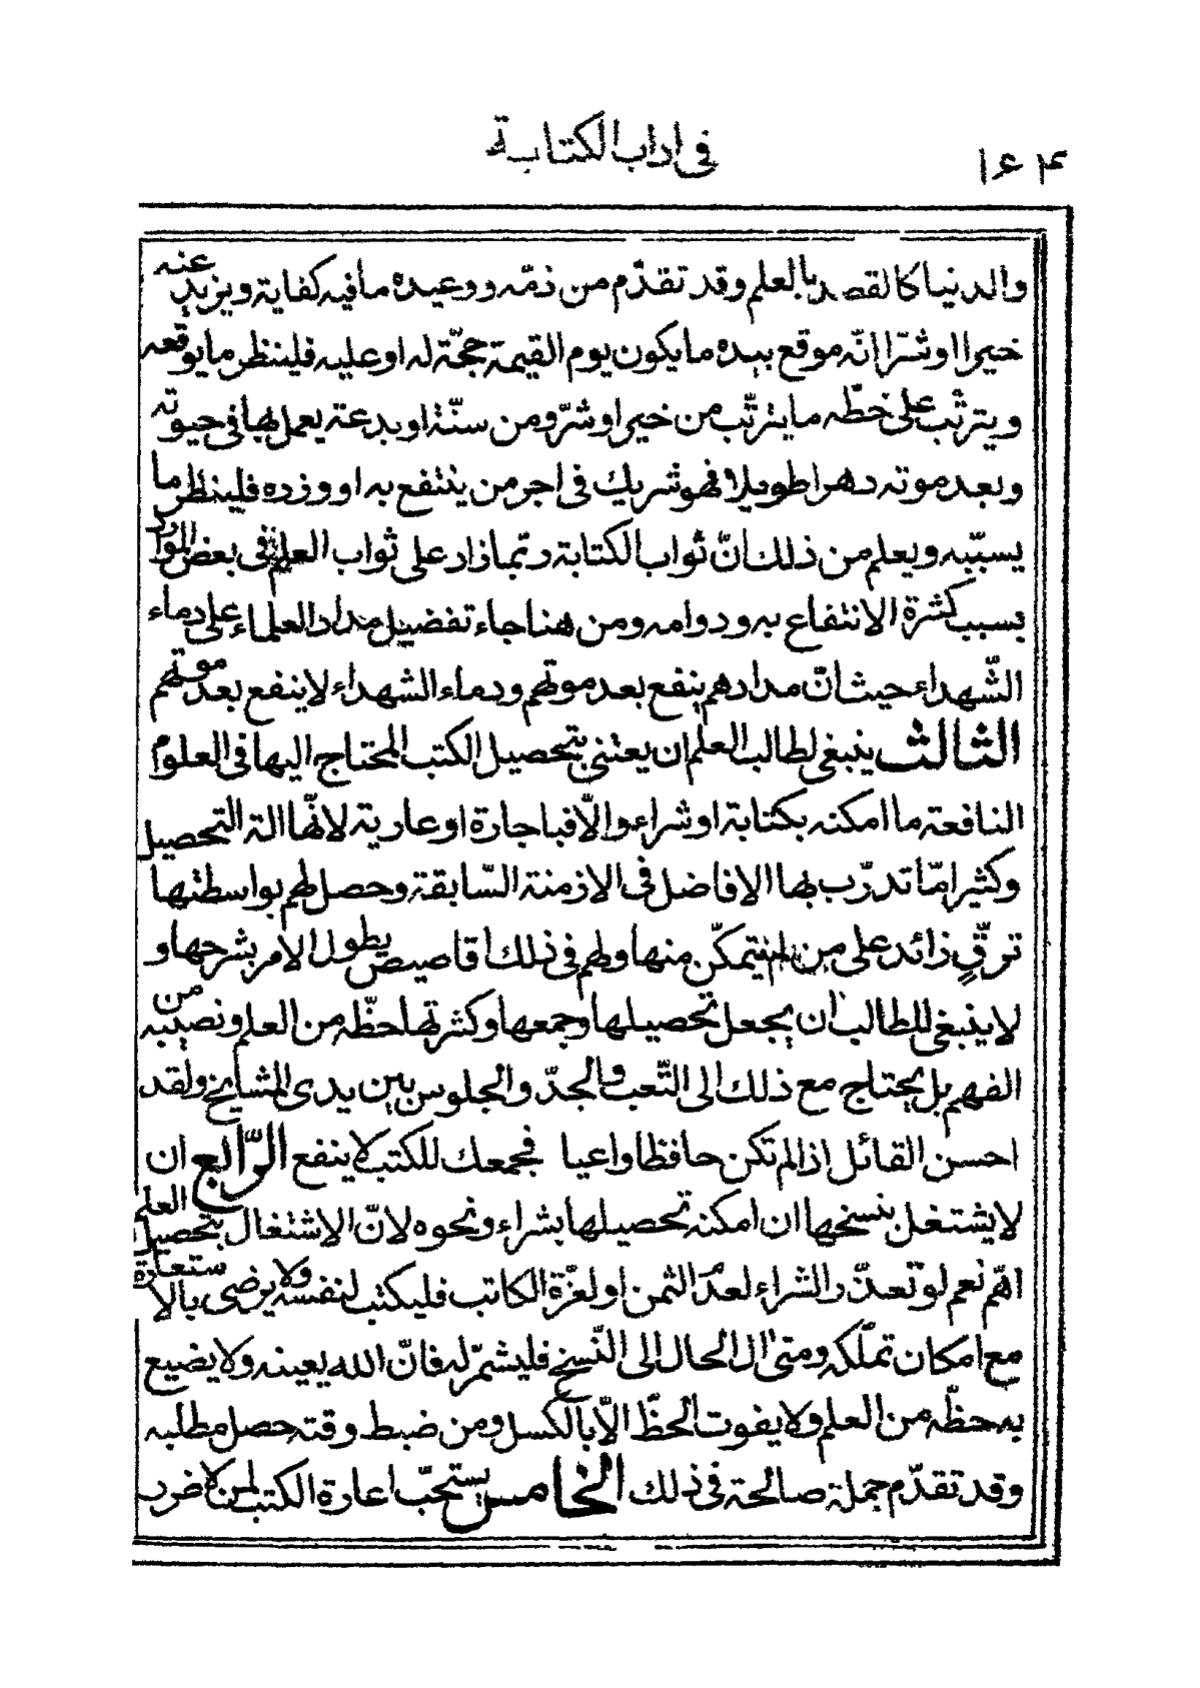 ۱۶۴
فى اداب الكتابة
والدنيا كالقصد بالعلم وقد تقدّم من ذمّه ووعيده ما فيه كفاية ويزيد عنه
خيرا او شرّا انّه موقع بيده ما يكون يوم القيمة حجّة له او عليه فلينظر ما يوقّعه
ويترتّب على خطّه ما يترتّب من خير او شرّ ومن سنّة او بدعة يعمل بها فى حيوته
وبعد موته دهرا طويلا فهو شريك فى اجر من ينتفع به او وزره فلينظر ما
يسبّبه ويعلم من ذلك انّ ثواب الكتابة ربّما زاد على ثواب العلم فى بعض الموارد
بسبب كثرة الانتفاع به ودوامه ومن هنا جاء تفضيل مداد العلماء على دماء
الشّهداء حيث انّ مدادهم ينفع بعد موتهم ودماء الشهداء لا ينفع بعد موتهم
الثالث ينبغى لطالب العلم ان يعتنى بتحصيل الكتب المحتاج اليها فى العلوم
النافعة ما امكنه بكتابة او شراء والّا فباجارة او عارية لانّها الة التحصيل
وكثيرا مّا تدرّب بها الافاضل فى الازمنة السّابقة وحصل لهم بواسطتها
ترقٍّ زائد على من لم يتمكّن منها ولهم فى ذلك اقاصيص يطول الامر بشرحها و
لا ينبغى للطالب ان يجعل تحصيلها وجمعها وكثرتها حظّه من العلم ونصيبه من
الفهم بل يحتاج مع ذلك الى التّعب والجدّ والجلوس بين يدى المشايخ ولقد
احسن القائل اذا لم تكن حافظا واعيا فجمعك للكتب لا ينفع الرّابع ان
لا يشتغل بنسخها ان امكنه تحصيلها بشراء ونحوه لانّ الاشتغال بتحصيل العلم
اهمّ نعم لو تعذّر الشراء لعدم الثمن او لعزّة الكاتب فليكتب لنفسه ولا يرضى بالاستعارة
مع امكان تملّكه ومتى ال الحال الى النّسخ فليشمّر له فانّ الله يعينه ولا يضيع
به حظّه من العلم ولا يفوت الحظّ الّا بالكسل ومن ضبط وقته حصل مطلبه
وقد تقدّم جملة صالحة فى ذلك الخامس يستحبّ اعارة الكتب لمن لا ضرر